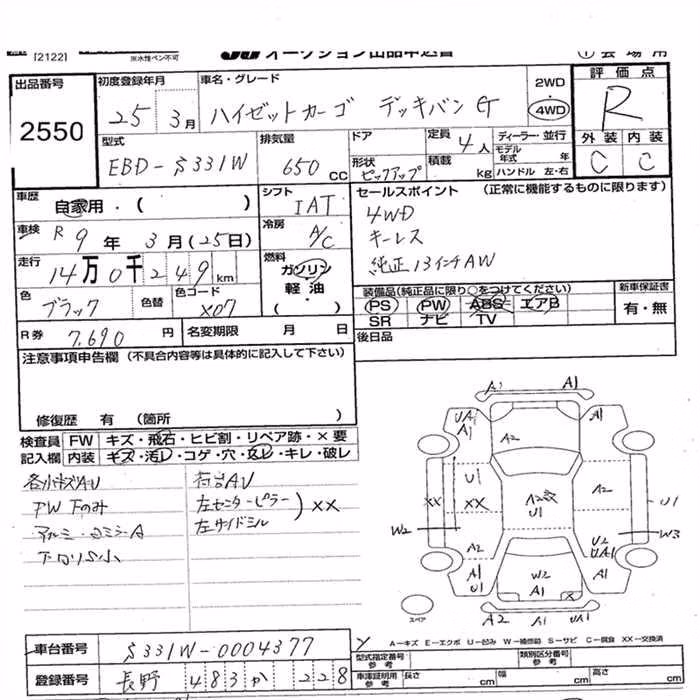 [2122]
※水性ペン不可
オークション出品申込書
① 会場用
出品番号
2550
初度登録年月
25 3月
車名・グレード
ハイゼットカーゴ デッキバン G
2WD
・
4WD
評価点
R
型式
EBD-S331W
排気量
650 CC
ドア
形状
ピックアップ
定員 4人
積載 kg
ディーラー・並行
モデル
年式 年
ハンドル 左・右
外装 内装
C C
車歴
自家用・( )
シフト
IAT
セールスポイント (正常に機能するものに限ります)
4WD
キーレス
純正13インチAW
車検 R9年3月(25日)
冷房
A/C
走行
14万0千249km
燃料
ガソリン
軽油
( )
色
ブラック
色替
色コード
X07
装備品(純正品に限り○をつけてください)
PS PW ABS エアB
SR ナビ TV
新車保証書
有・無
R券 7,690円
名変期限 月 日
後日品
注意事項申告欄 (不具合内容等は具体的に記入して下さい)
修復歴 有 (箇所 )
検査員 FW キズ・飛石・ヒビ割・リペア跡・×要
記入欄 内装 キズ・汚レ・コゲ・穴・スレ・キレ・破レ
各小キズAU
FW下のみ
アルミ・ロミラーA
左センターピラー
左サイドシル
XX
A1 A1
UA1
A1
A2
A1
U1
XX
XX
A2
U1
A2
U1
W2
W3
A2
U2
UA1
A1
U1
W2
A1
A1
スペア
A2 X UA1
A-キズ E-エクボ U-凹み W-補修跡 S-サビ C-腐食 XX-交換済
車台番号
S331W-0004377
型式指定番号
参考
類別区分番号
参考
登録番号
長野 483 か 228
車庫証明用
参考
長さ cm
幅 cm
高さ cm